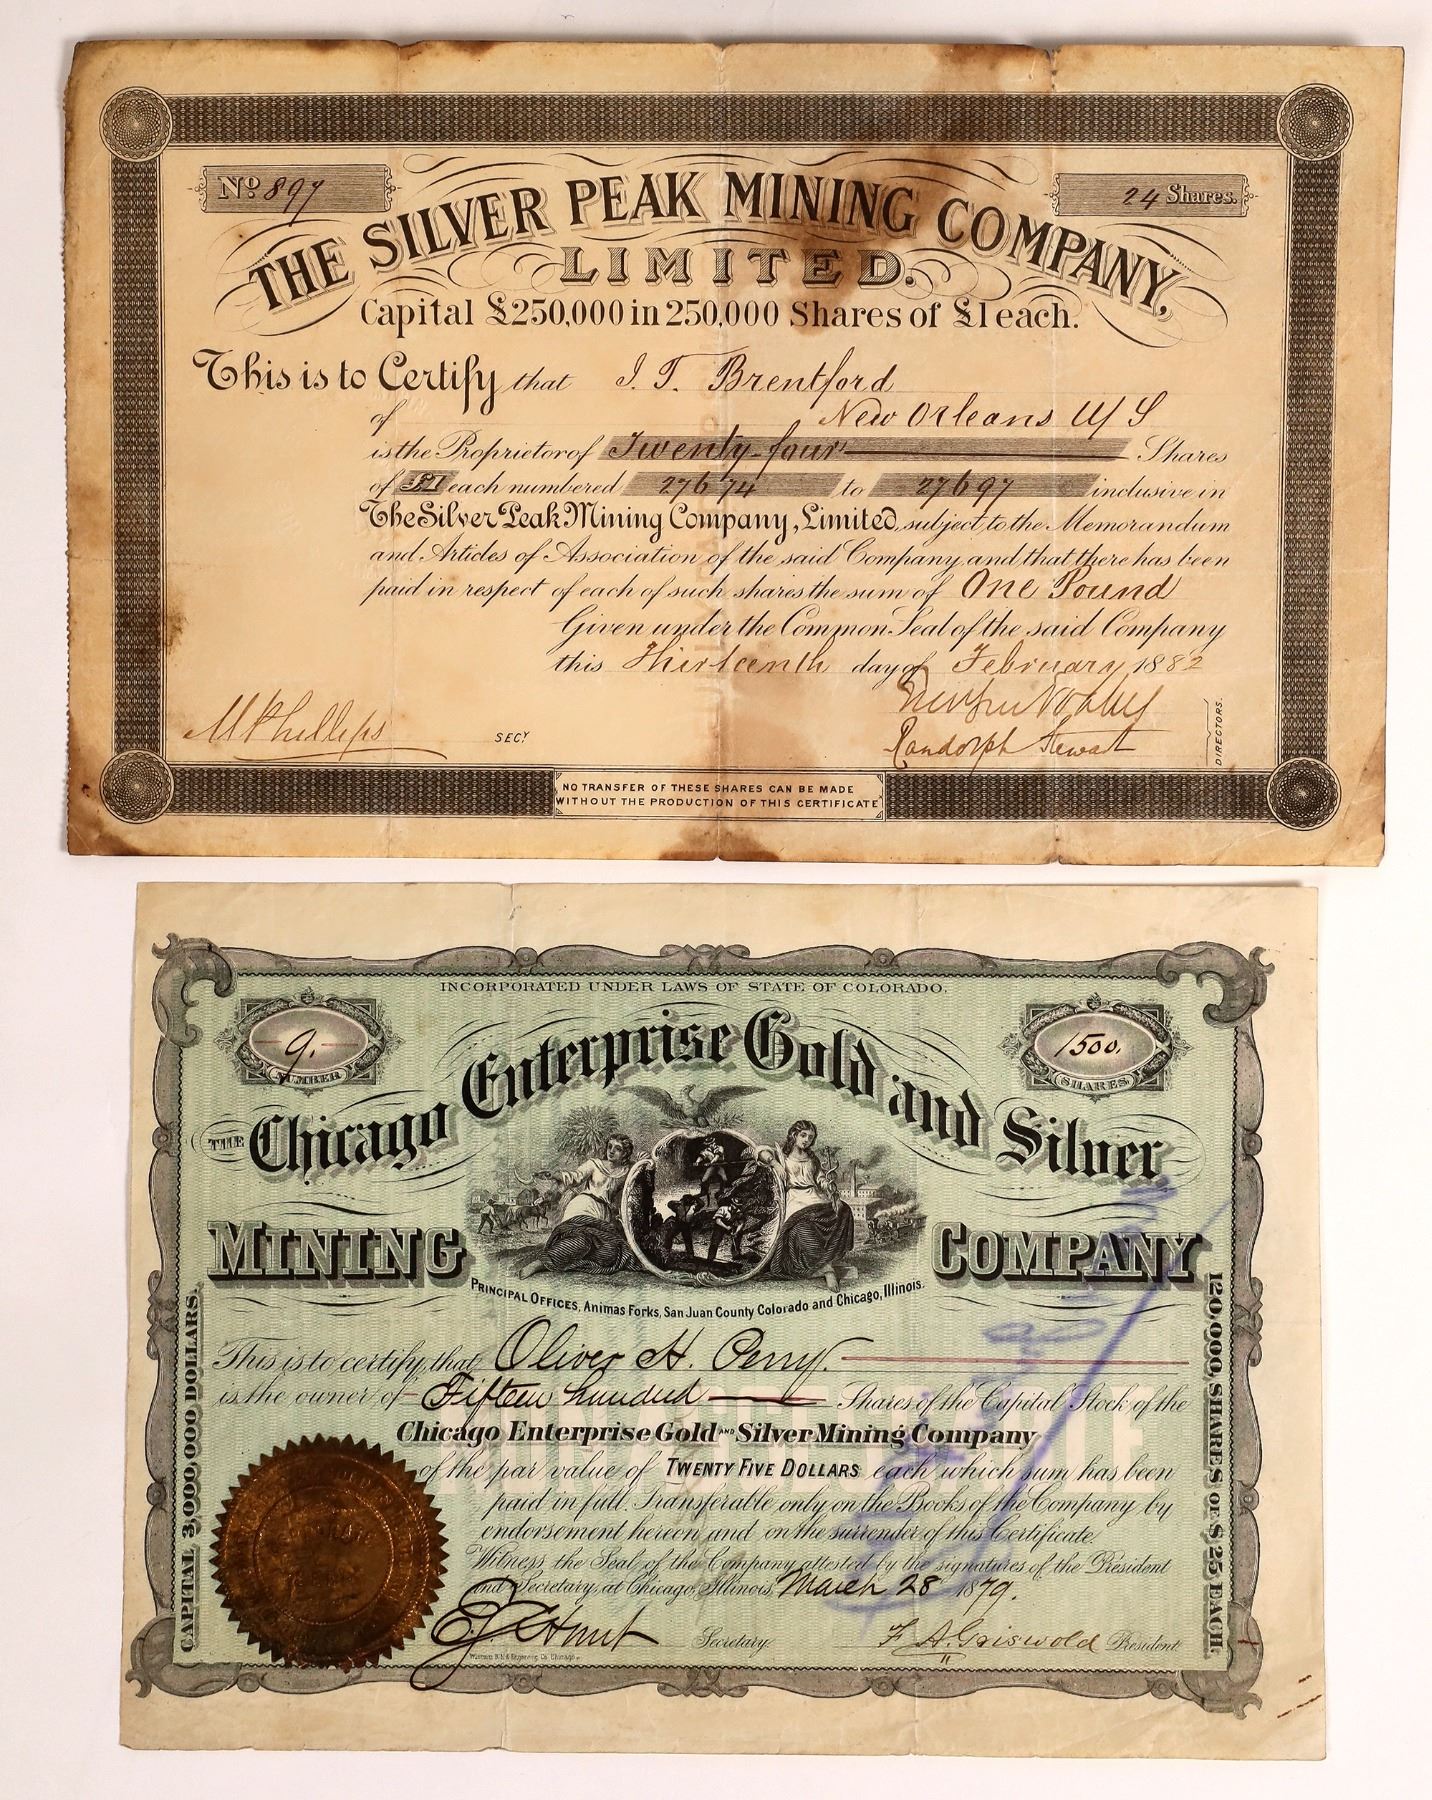 No 897
24 Shares.
THE SILVER PEAK MINING COMPANY,
LIMITED.
Capital £250,000 in 250,000 Shares of £1 each.
This is to Certify that J. T. Brentford
of New Orleans U/S
is the Proprietor of Twenty four Shares
of £1 each numbered 27674 to 27697 inclusive in
The Silver Peak Mining Company, Limited, subject to the Memorandum
and Articles of Association of the said Company, and that there has been
paid in respect of each of such shares the sum of One Pound
Given under the Common Seal of the said Company
this Thirteenth day of February 1882
M Phillips SECY
Randolph Stewart
DIRECTORS.
NO TRANSFER OF THESE SHARES CAN BE MADE
WITHOUT THE PRODUCTION OF THIS CERTIFICATE
INCORPORATED UNDER LAWS OF STATE OF COLORADO.
9.
NUMBER
1500.
SHARES.
THE Chicago Enterprise Gold and Silver
MINING COMPANY
PRINCIPAL OFFICES, Animas Forks, San Juan County Colorado and Chicago, Illinois.
This is to certify, that Oliver H. Perry.
is the owner of Fifteen hundred Shares of the Capital Stock of the
Chicago Enterprise Gold AND Silver Mining Company
of the par value of TWENTY FIVE DOLLARS each which sum has been
paid in full. Transferable only on the Books of the Company by
endorsement hereon and on the surrender of this Certificate.
Witness, the Seal of the Company attested by the signatures of the President
and Secretary, at Chicago, Illinois, March 28 1879.
Hunt Secretary
F. A. Griswold President
CAPITAL 3,000,000 DOLLARS.
120,000, SHARES OF $25 EACH.